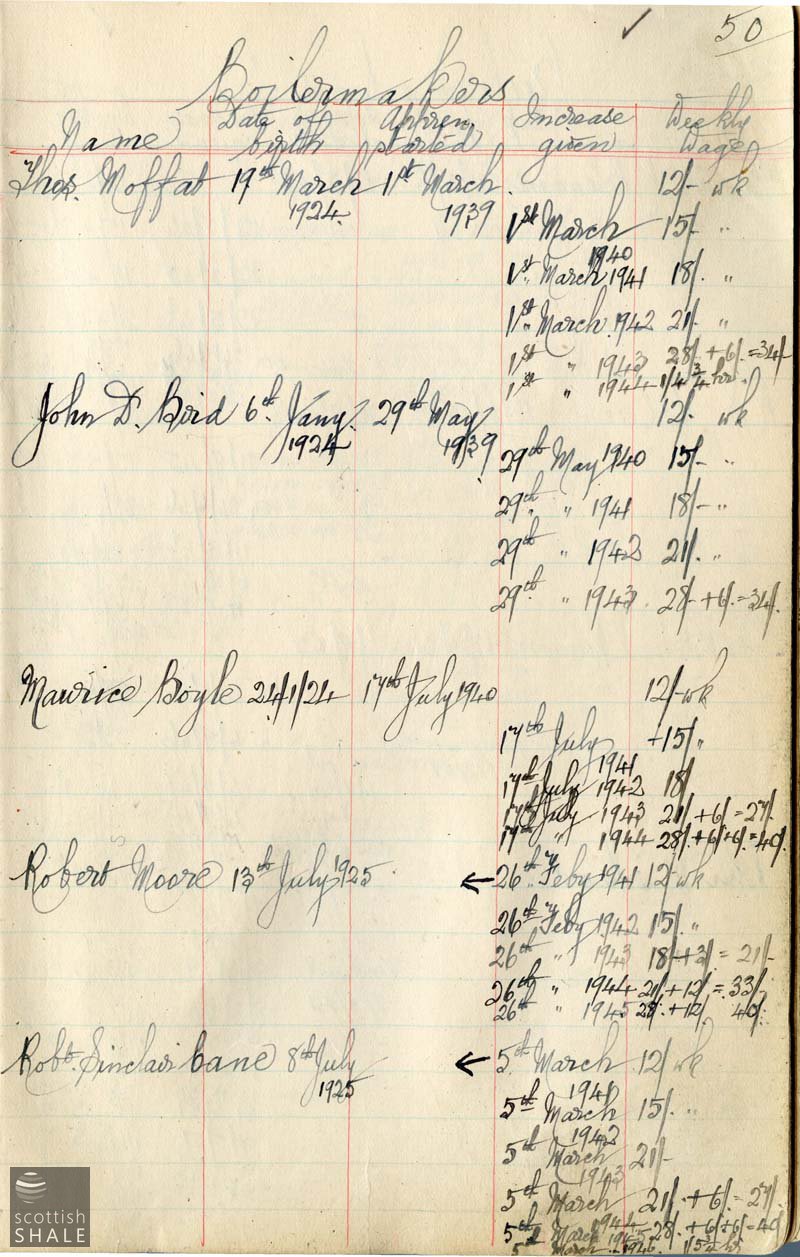 50
Boilermakers
Name Date of birth Appren. started Increase given Weekly Wage
Thos. Moffat 19th March 1924 1st March 1939 12/- wk
1st March 1940 15/- "
1st March 1941 18/- "
1st March 1942 21/- "
1st " 1943 28/- + 6/- = 34/-
1st " 1944 1/4 3/4 hr.
John D. Boid 6th Jany. 1924 29th May 1939 12/- wk
29th May 1940 15/- "
29th " 1941 18/- "
29th " 1942 21/- "
29th " 1943 28/- + 6/- = 34/-
Maurice Boyle 24/1/24 17th July 1940 12/- wk
17th July 1941 +15/- "
17th July 1942 18/-
17th July 1943 21/- + 6/- = 27/-
17th " 1944 28/- + 6/- + 6/- = 40/-
Robert Moore 13th July 1925 ← 26th Feby 1941 12/- wk
26th Feby 1942 15/- "
26th " 1943 18/- + 3/- = 21/-
26th " 1944 21/- + 12/- = 33/-
26th " 1945 28/- + 12/- 40/-
Robt. Sinclair Cane 8th July 1925 ← 5th March 1941 12/- wk
5th March 1942 15/- "
5th March 1943 21/-
5th March 1944 21/- + 6/- = 27/-
5th March 1945 28/- + 6/- + 6/- = 40/-
5th March 1945
scottish
SHALE